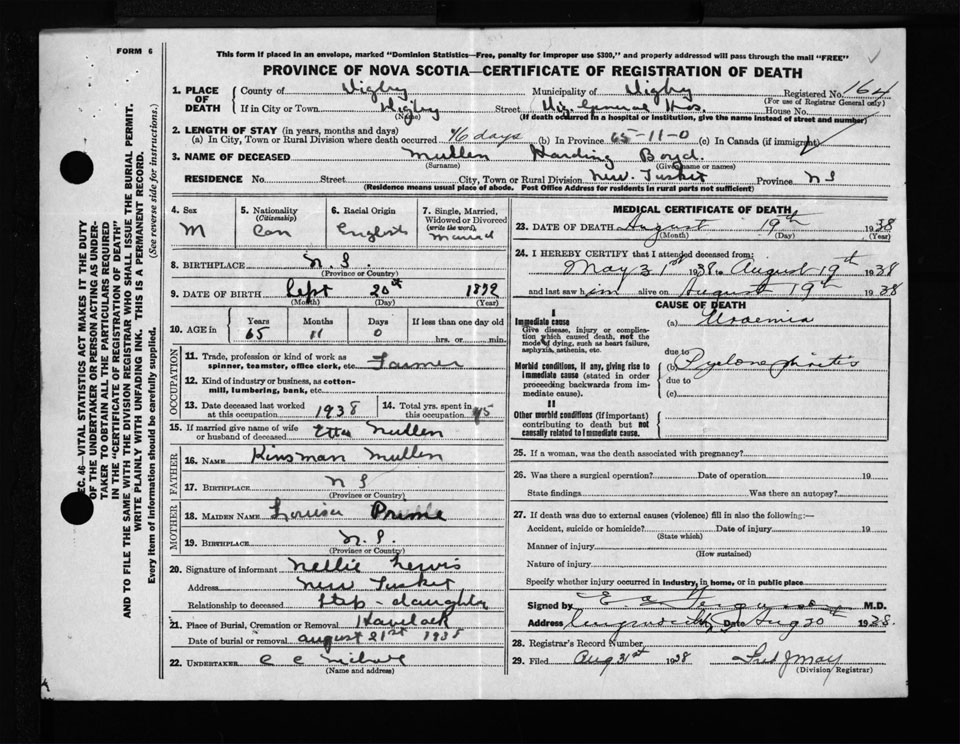 FORM 6
This form if placed in an envelope, marked "Dominion Statistics—Free, penalty for improper use $300," and properly addressed will pass through the mail "FREE"
PROVINCE OF NOVA SCOTIA—CERTIFICATE OF REGISTRATION OF DEATH
1. PLACE OF DEATH County of Digby Municipality of Digby Registered No. 164
(For use of Registrar General only)
If in City or Town Digby Street Dig. General Hos. House No.
(Name) (If death occurred in a hospital or institution, give the name instead of street and number)
2. LENGTH OF STAY (in years, months and days)
(a) In City, Town or Rural Division where death occurred 46 days (b) In Province 65-11-0 (c) In Canada (if immigrant)
3. NAME OF DECEASED Mullen Harding Boyd.
(Surname) (Given name or names)
RESIDENCE No. Street City, Town or Rural Division New Tusket Province N S
(Residence means usual place of abode. Post Office Address for residents in rural parts not sufficient)
4. Sex M
5. Nationality (Citizenship) Can
6. Racial Origin English
7. Single, Married, Widowed or Divorced (write the word) Married
8. BIRTHPLACE N. S.
(Province or Country)
9. DATE OF BIRTH Sept 20th 1872
(Month) (Day) (Year)
10. AGE in Years Months Days If less than one day old
65 11 0 hrs. or min.
OCCUPATION
11. Trade, profession or kind of work as spinner, teamster, office clerk, etc. Farmer
12. Kind of industry or business, as cotton-mill, lumbering, bank, etc.
13. Date deceased last worked at this occupation 1938
14. Total yrs. spent in this occupation 45
15. If married give name of wife or husband of deceased Etta Mullen
FATHER
16. NAME Kinsman Mullen
17. BIRTHPLACE N S
(Province or Country)
MOTHER
18. MAIDEN NAME Louisa Prime
19. BIRTHPLACE N. S.
(Province or Country)
20. Signature of informant Nellie Lewis
Address New Tusket
Relationship to deceased step-daughter
21. Place of Burial, Cremation or Removal Havelock
Date of burial or removal August 21st 1938
22. UNDERTAKER C C
(Name and address)
MEDICAL CERTIFICATE OF DEATH
23. DATE OF DEATH August 19th 1938
(Month) (Day) (Year)
24. I HEREBY CERTIFY that I attended deceased from:
May 31st 1938 to August 19th 1938
and last saw him alive on August 19th 1938
CAUSE OF DEATH
I
Immediate cause
Give disease, injury or complication which caused death, not the mode of dying, such as heart failure, asphyxia, asthenia, etc.
(a) Uraemia
due to
Morbid conditions, if any, giving rise to immediate cause (stated in order proceeding backwards from immediate cause).
(b) Pyelonephritis
due to
(c)
II
Other morbid conditions (if important) contributing to death but not causally related to immediate cause.
25. If a woman, was the death associated with pregnancy?
26. Was there a surgical operation? Date of operation 19
State findings Was there an autopsy?
27. If death was due to external causes (violence) fill in also the following:—
Accident, suicide or homicide? Date of injury 19
(State which)
Manner of injury
(How sustained)
Nature of injury
Specify whether injury occurred in industry, in home, or in public place
Signed by E. M.D.
Address Date Aug 20th 1938.
28. Registrar's Record Number
29. Filed Aug 31st 1938 Fred J May
(Division Registrar)
SEC. 46—VITAL STATISTICS ACT MAKES IT THE DUTY
OF THE UNDERTAKER OR PERSON ACTING AS UNDER-
TAKER TO OBTAIN ALL THE PARTICULARS REQUIRED
IN THE "CERTIFICATE OF REGISTRATION OF DEATH"
AND TO FILE THE SAME WITH THE DIVISION REGISTRAR WHO SHALL ISSUE THE BURIAL PERMIT.
WRITE PLAINLY WITH UNFADING INK. THIS IS A PERMANENT RECORD.
Every item of information should be carefully supplied. (See reverse side for instructions.)